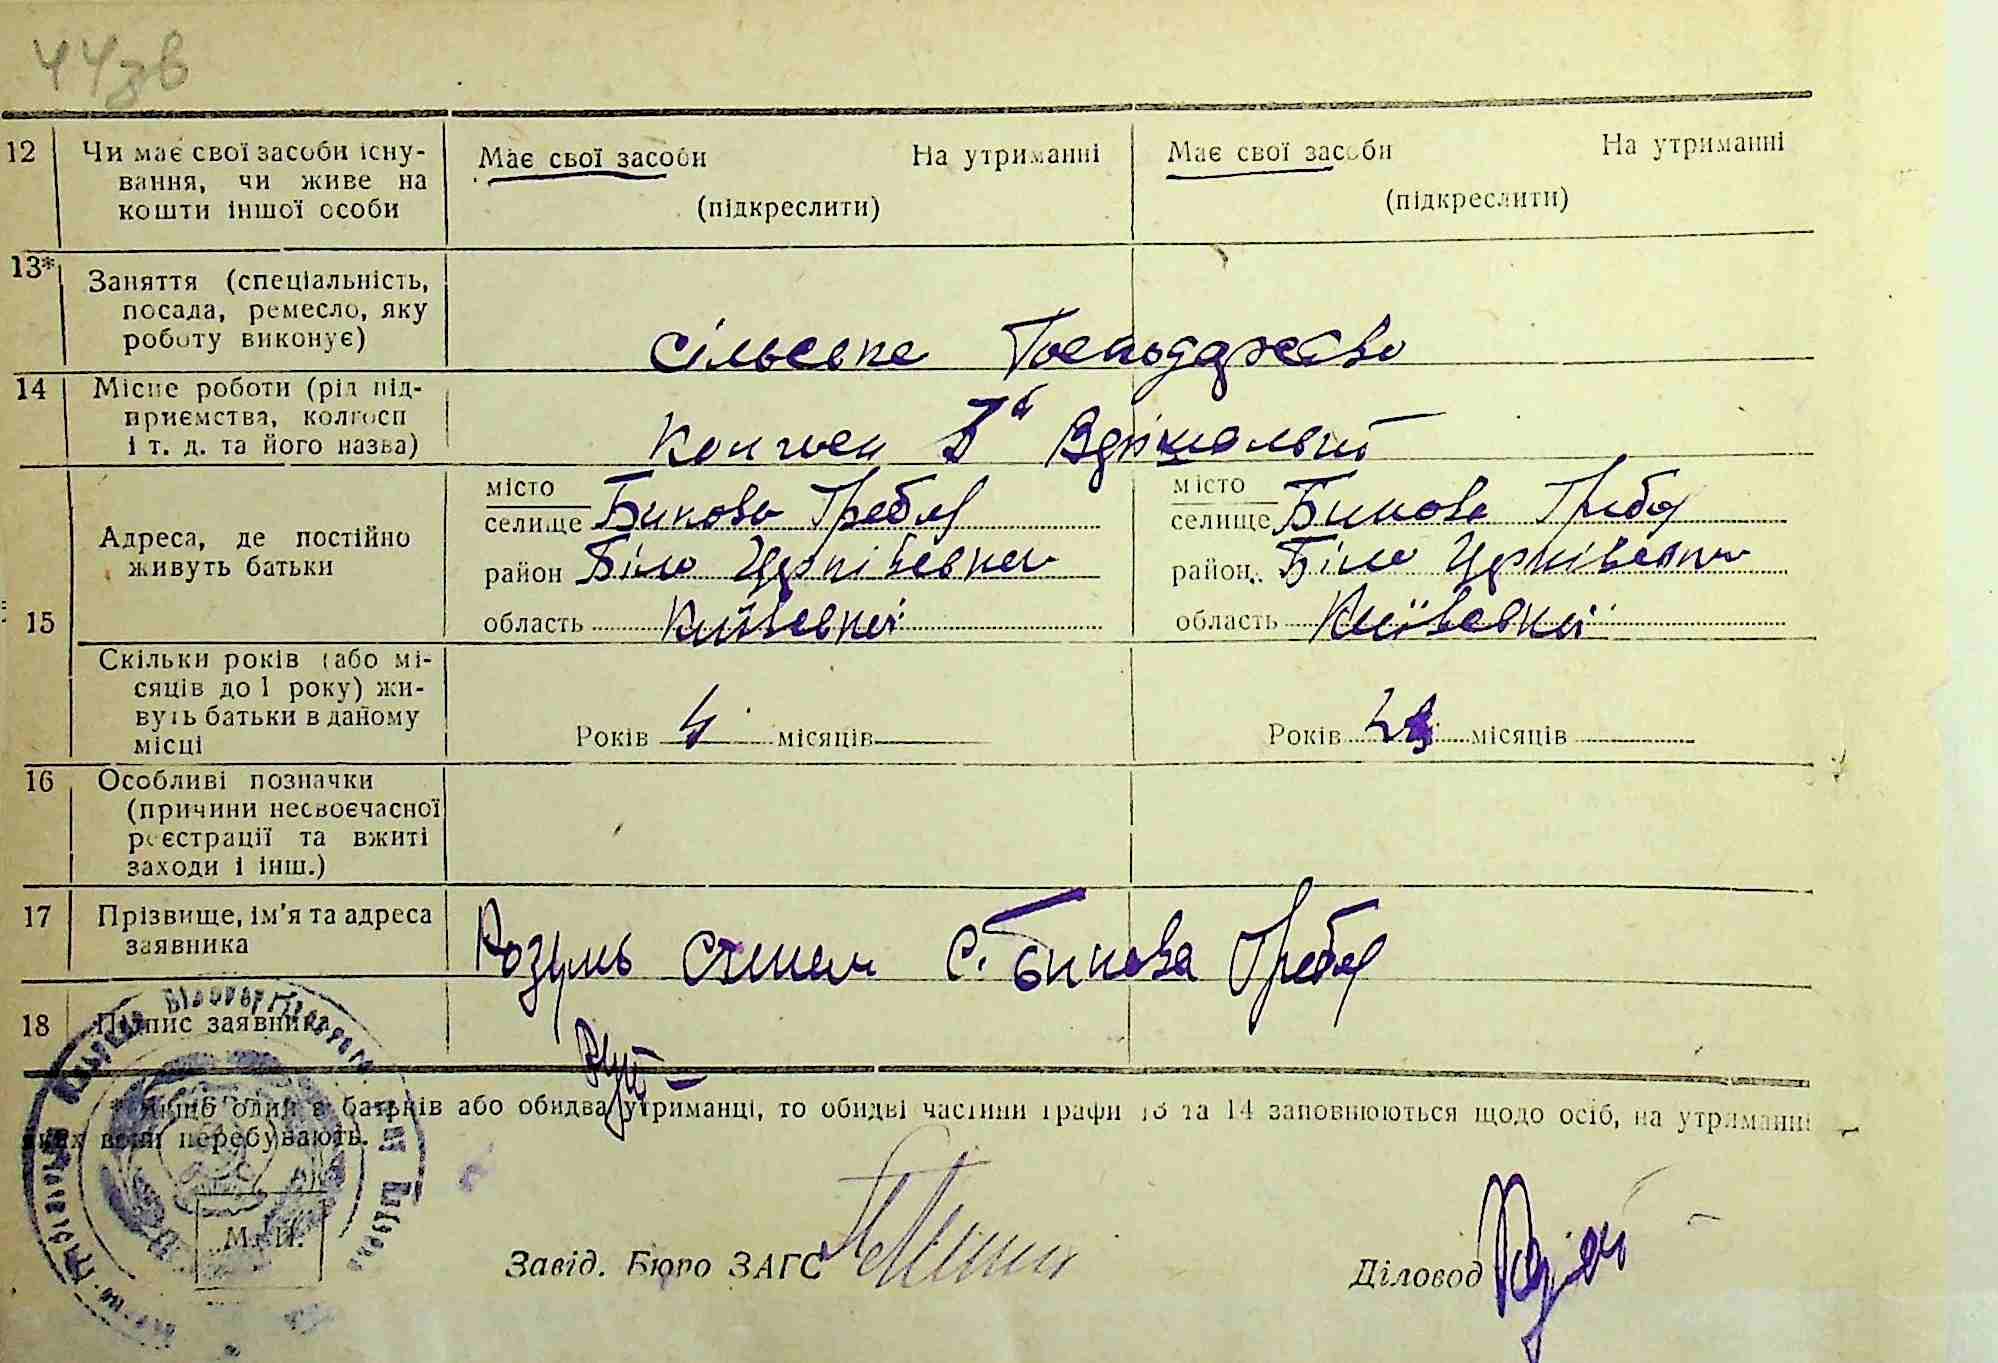 44зв
12 Чи має свої засоби існу- Має свої засоби На утриманні Має свої засоби На утриманні
вання, чи живе на
кошти іншої особи (підкреслити) (підкреслити)
13* Заняття (спеціальність,
посада, ремесло, яку
роботу виконує) сільське Господарство
14 Місце роботи (рід під-
приємства, колгосп
і т. д. та його назва) Колгосп
місто місто
селище Бикова Гребля селище Бикова Гребля
Адреса, де постійно
живуть батьки
район Біло Церківський район Біло Церківський
15 область Київській область Київській
Скільки років (або мі-
сяців до 1 року) жи-
вуть батьки в даному
місці
Років 4 місяців Років місяців
16 Особливі позначки
(причини несвоєчасної
реєстрації та вжиті
заходи і інш.)
17 Прізвище, ім'я та адреса
заявника Розум с. Бикова Гребля
18 Підпис заявника
* Якщо один з батьків або обидва утриманці, то обидві частини графи 13 та 14 заповнюються щодо осіб, на утриманні
яких вони перебувають.
М. П.
Завід. Бюро ЗАГС Діловод